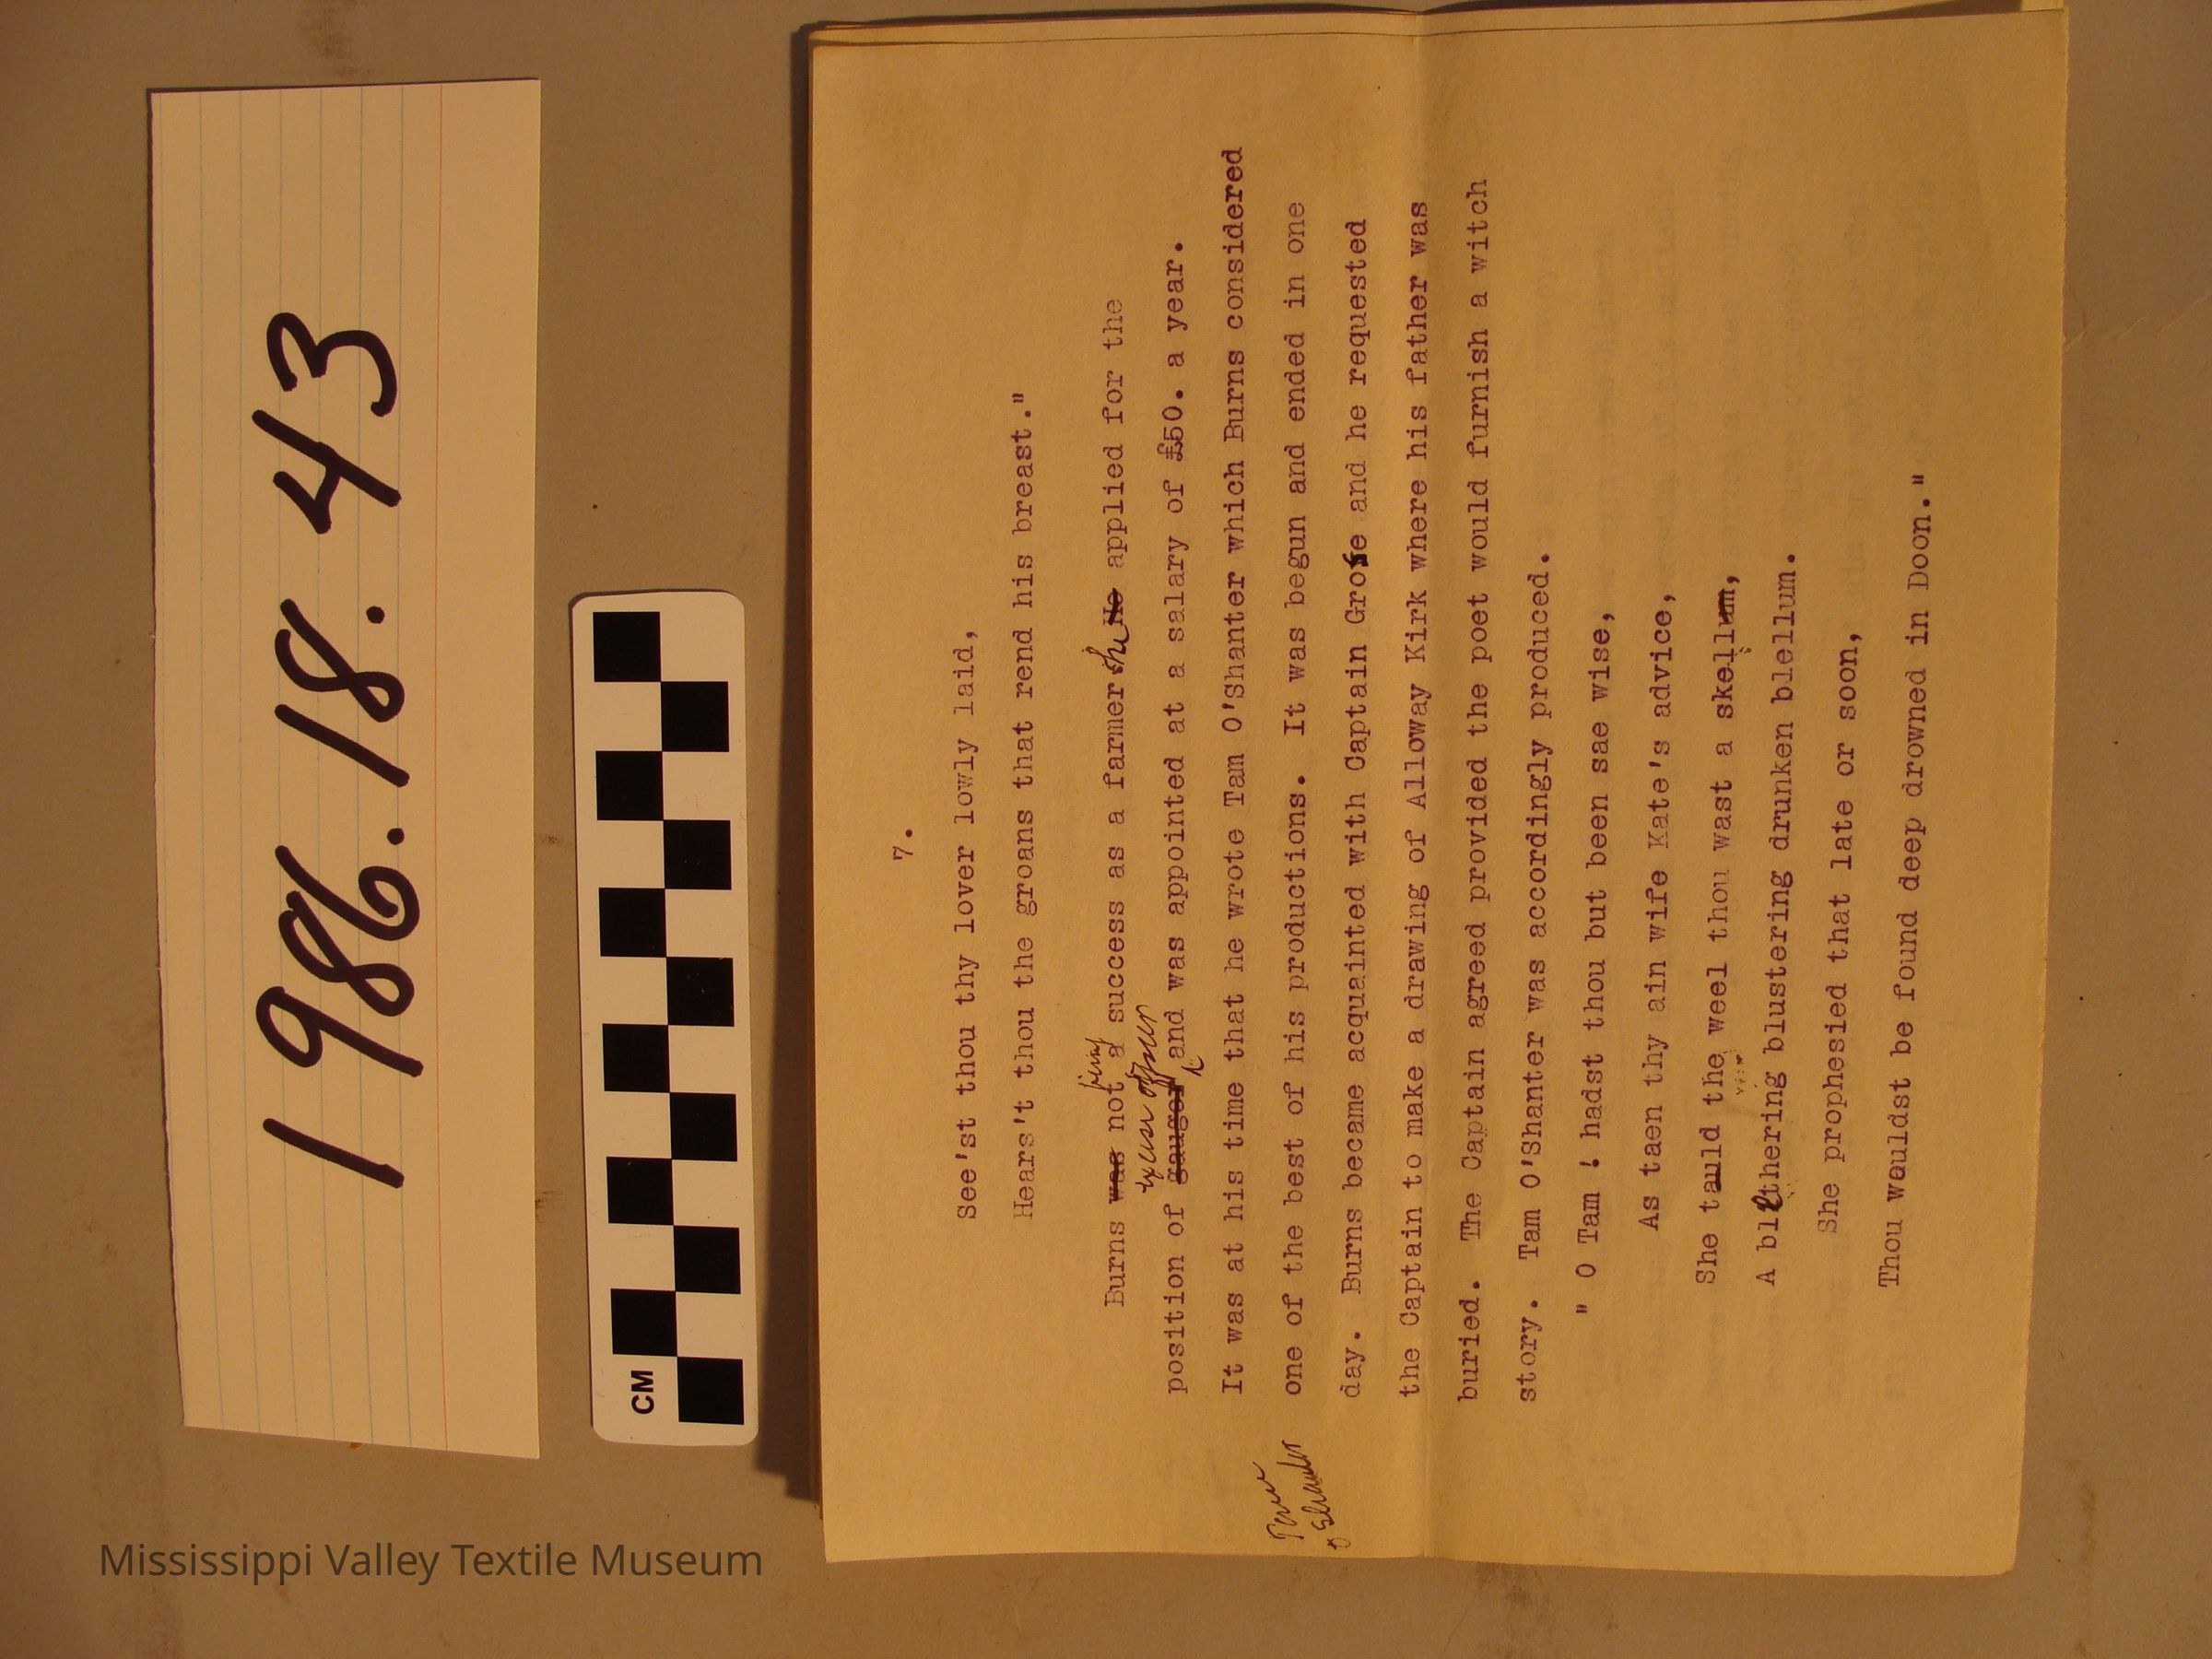 1986.18.43
CM
7.
See'st thou thy lover lowly laid,
Hears't thou the groans that rend his breast."
being
Burns was not a success as a farmer he He applied for the
excise officer
position of gauger and was appointed at a salary of £50. a year.
It was at his time that he wrote Tam O'Shanter which Burns considered
one of the best of his productions. It was begun and ended in one
Tam
O Shanter
day. Burns became acquainted with Captain Grose and he requested
the Captain to make a drawing of Alloway Kirk where his father was
buried. The Captain agreed provided the poet would furnish a witch
story. Tam O'Shanter was accordingly produced.
" O Tam ! hadst thou but been sae wise,
As taen thy ain wife Kate's advice,
She tauld the weel thou wast a skellum,
A blethering blustering drunken blellum.
She prophesied that late or soon,
Thou wouldst be found deep drowned in Doon."
Mississippi Valley Textile Museum